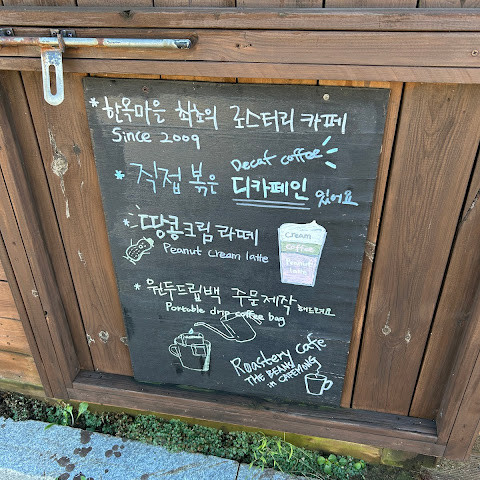 * 한옥마을 최초의 로스터리 카페
Since 2009
Decaf coffee
* 직접 볶은 디카페인 있어요
* 땅콩크림 라떼
Peanut cream latte
cream
coffee
Peanut
* 원두드립백 주문제작 해드려요
Portable drip coffee bag
Roastery cafe
THE BEAN
in CAFEMONG